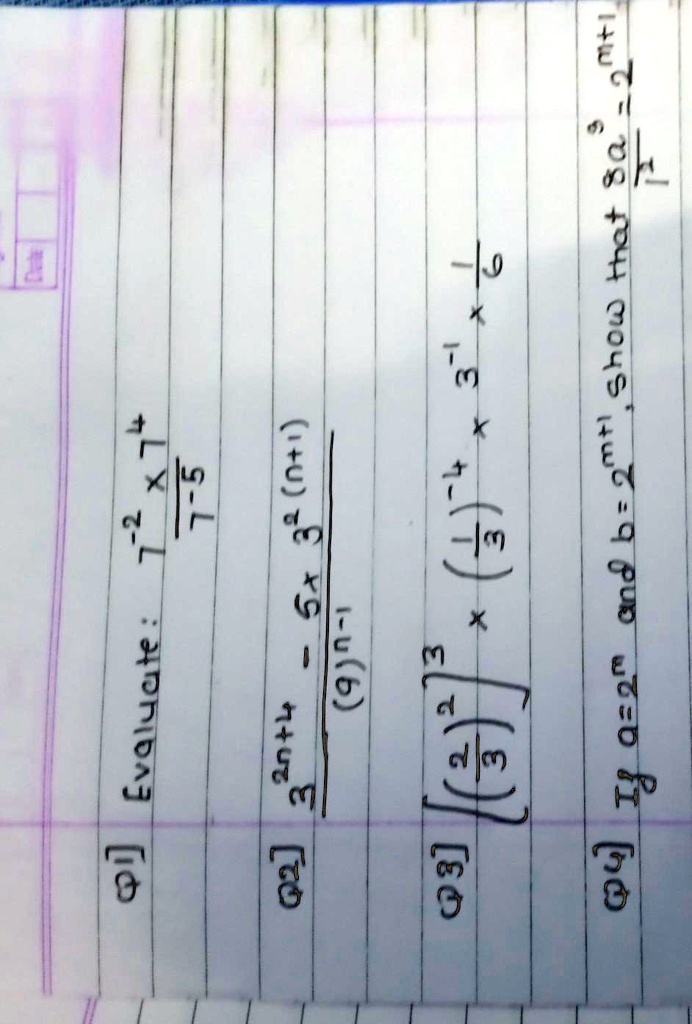 Date
Q1] Evaluate: 7⁻² × 7⁴
7⁻⁵
Q2] 3²ⁿ⁺⁴ – 5× 3² ⁽ⁿ⁺¹⁾
(9)ⁿ⁻¹
Q3] [(2/3)²]³ × (1/3)⁻⁴ × 3⁻¹ × 1/6
Q4] If a=2ᵐ and b=2ᵐ⁺¹, show that 8a³ = 2ᵐ⁺¹
1²